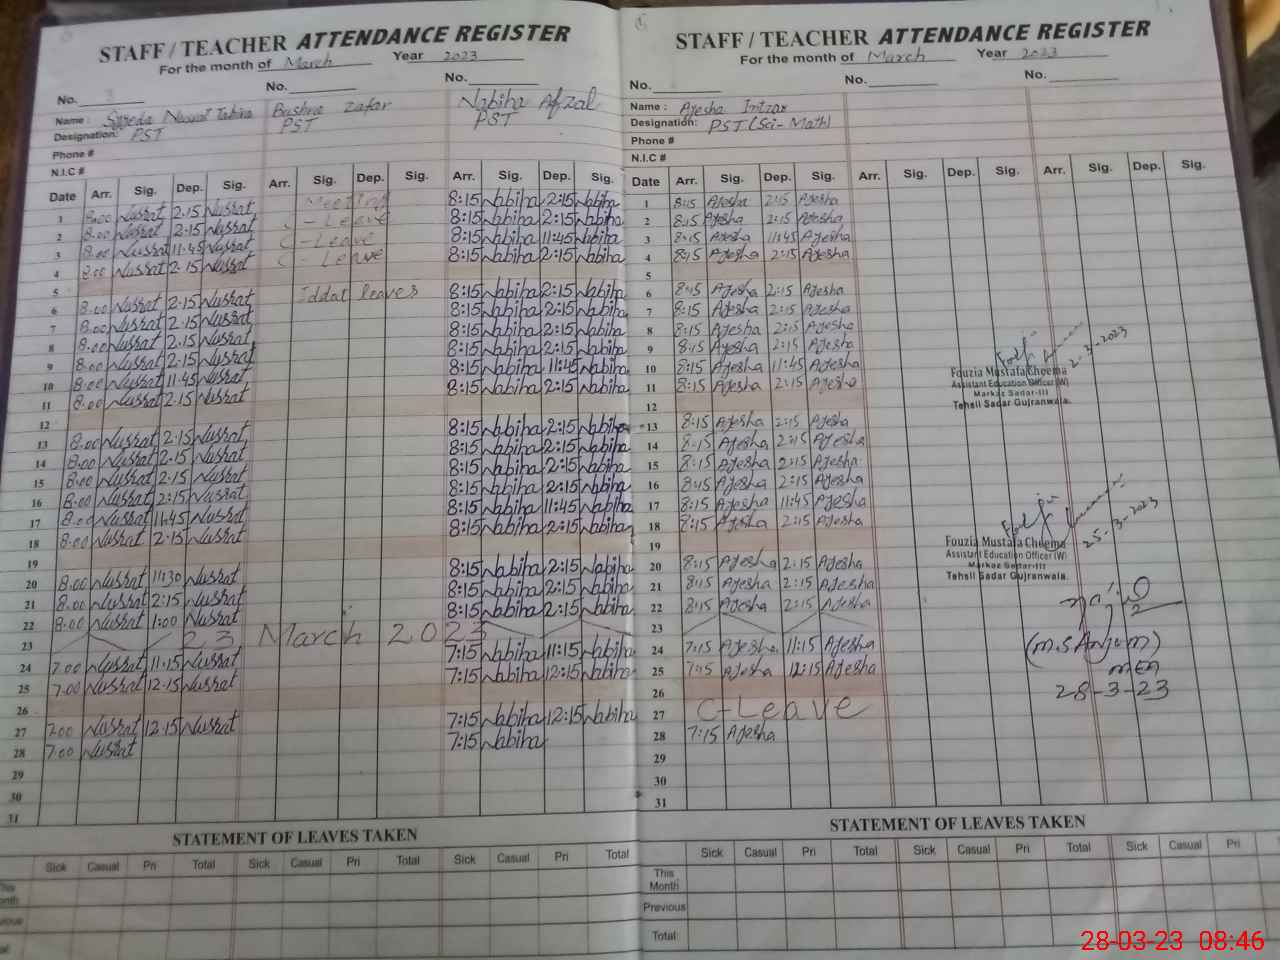 STAFF / TEACHER ATTENDANCE REGISTER
For the month of March Year 2023
No. No. No.
Name : Syeda Nusrat Tahira Bushra Zafar Nabiha Afzal
Designation: PST PST PST
Phone #
N.I.C #
Date Arr. Sig. Dep. Sig. Arr. Sig. Dep. Sig. Arr. Sig. Dep. Sig.
1 8:00 Nusrat 2:15 Nusrat Meeting 8:15 Nabiha 2:15 Nabiha
2 8:00 Nusrat 2:15 Nusrat C-Leave 8:15 Nabiha 2:15 Nabiha
3 8:00 Nusrat 11:45 Nusrat C-Leave 8:15 Nabiha 11:45 Nabiha
4 8:00 Nusrat 2:15 Nusrat C-Leave 8:15 Nabiha 2:15 Nabiha
5
6 8:00 Nusrat 2:15 Nusrat Iddat leaves 8:15 Nabiha 2:15 Nabiha
7 8:00 Nusrat 2:15 Nusrat 8:15 Nabiha 2:15 Nabiha
8 8:00 Nusrat 2:15 Nusrat 8:15 Nabiha 2:15 Nabiha
9 8:00 Nusrat 2:15 Nusrat 8:15 Nabiha 2:15 Nabiha
10 8:00 Nusrat 11:45 Nusrat 8:15 Nabiha 11:45 Nabiha
11 8:00 Nusrat 2:15 Nusrat 8:15 Nabiha 2:15 Nabiha
12
13 8:00 Nusrat 2:15 Nusrat 8:15 Nabiha 2:15 Nabiha
14 8:00 Nusrat 2:15 Nusrat 8:15 Nabiha 2:15 Nabiha
15 8:00 Nusrat 2:15 Nusrat 8:15 Nabiha 2:15 Nabiha
16 8:00 Nusrat 2:15 Nusrat 8:15 Nabiha 2:15 Nabiha
17 8:00 Nusrat 11:45 Nusrat 8:15 Nabiha 11:45 Nabiha
18 8:00 Nusrat 2:15 Nusrat 8:15 Nabiha 2:15 Nabiha
19
20 8:00 Nusrat 11:30 Nusrat 8:15 Nabiha 2:15 Nabiha
21 8:00 Nusrat 2:15 Nusrat 8:15 Nabiha 2:15 Nabiha
22 8:00 Nusrat 1:00 Nusrat 8:15 Nabiha 2:15 Nabiha
23 23 March 2023
24 7:00 Nusrat 11:15 Nusrat 7:15 Nabiha 11:15 Nabiha
25 7:00 Nusrat 12:15 Nusrat 7:15 Nabiha 12:15 Nabiha
26
27 7:00 Nusrat 12:15 Nusrat 7:15 Nabiha 12:15 Nabiha
28 7:00 Nusrat 7:15 Nabiha
29
30
31
STATEMENT OF LEAVES TAKEN
Sick Casual Pri Total Sick Casual Pri Total Sick Casual Pri Total
STAFF / TEACHER ATTENDANCE REGISTER
For the month of March Year 2023
No. No. No.
Name : Ayesha Imtzax
Designation: PST (Sci-Math)
Phone #
N.I.C #
Date Arr. Sig. Dep. Sig. Arr. Sig. Dep. Sig. Arr. Sig. Dep. Sig.
1 8:15 Ayesha 2:15 Ayesha
2 8:15 Ayesha 2:15 Ayesha
3 8:15 Ayesha 11:45 Ayesha
4 8:15 Ayesha 2:15 Ayesha
5
6 8:15 Ayesha 2:15 Ayesha
7 8:15 Ayesha 2:15 Ayesha
8 8:15 Ayesha 2:15 Ayesha
9 8:15 Ayesha 2:15 Ayesha
10 8:15 Ayesha 11:45 Ayesha
11 8:15 Ayesha 2:15 Ayesha
12
13 8:15 Ayesha 2:15 Ayesha
14 8:15 Ayesha 2:15 Ayesha
15 8:15 Ayesha 2:15 Ayesha
16 8:15 Ayesha 2:15 Ayesha
17 8:15 Ayesha 11:45 Ayesha
18 8:15 Ayesha 2:15 Ayesha
19
20 8:15 Ayesha 2:15 Ayesha
21 8:15 Ayesha 2:15 Ayesha
22 8:15 Ayesha 2:15 Ayesha
23
24 7:15 Ayesha 11:15 Ayesha
25 7:15 Ayesha 12:15 Ayesha
26
27 C-Leave
28 7:15 Ayesha
29
30
31
2-3-2023
Fouzia Mustafa Cheema
Assistant Education Officer (W)
Markaz Sadar-III
Tehsil Sadar Gujranwala.
25-3-2023
Fouzia Mustafa Cheema
Assistant Education Officer (W)
Markaz Sadar-III
Tehsil Sadar Gujranwala.
(M.S Anjum)
MEA
28-3-23
STATEMENT OF LEAVES TAKEN
Sick Casual Pri Total Sick Casual Pri Total Sick Casual Pri
This Month
Previous
Total
28-03-23 08:46